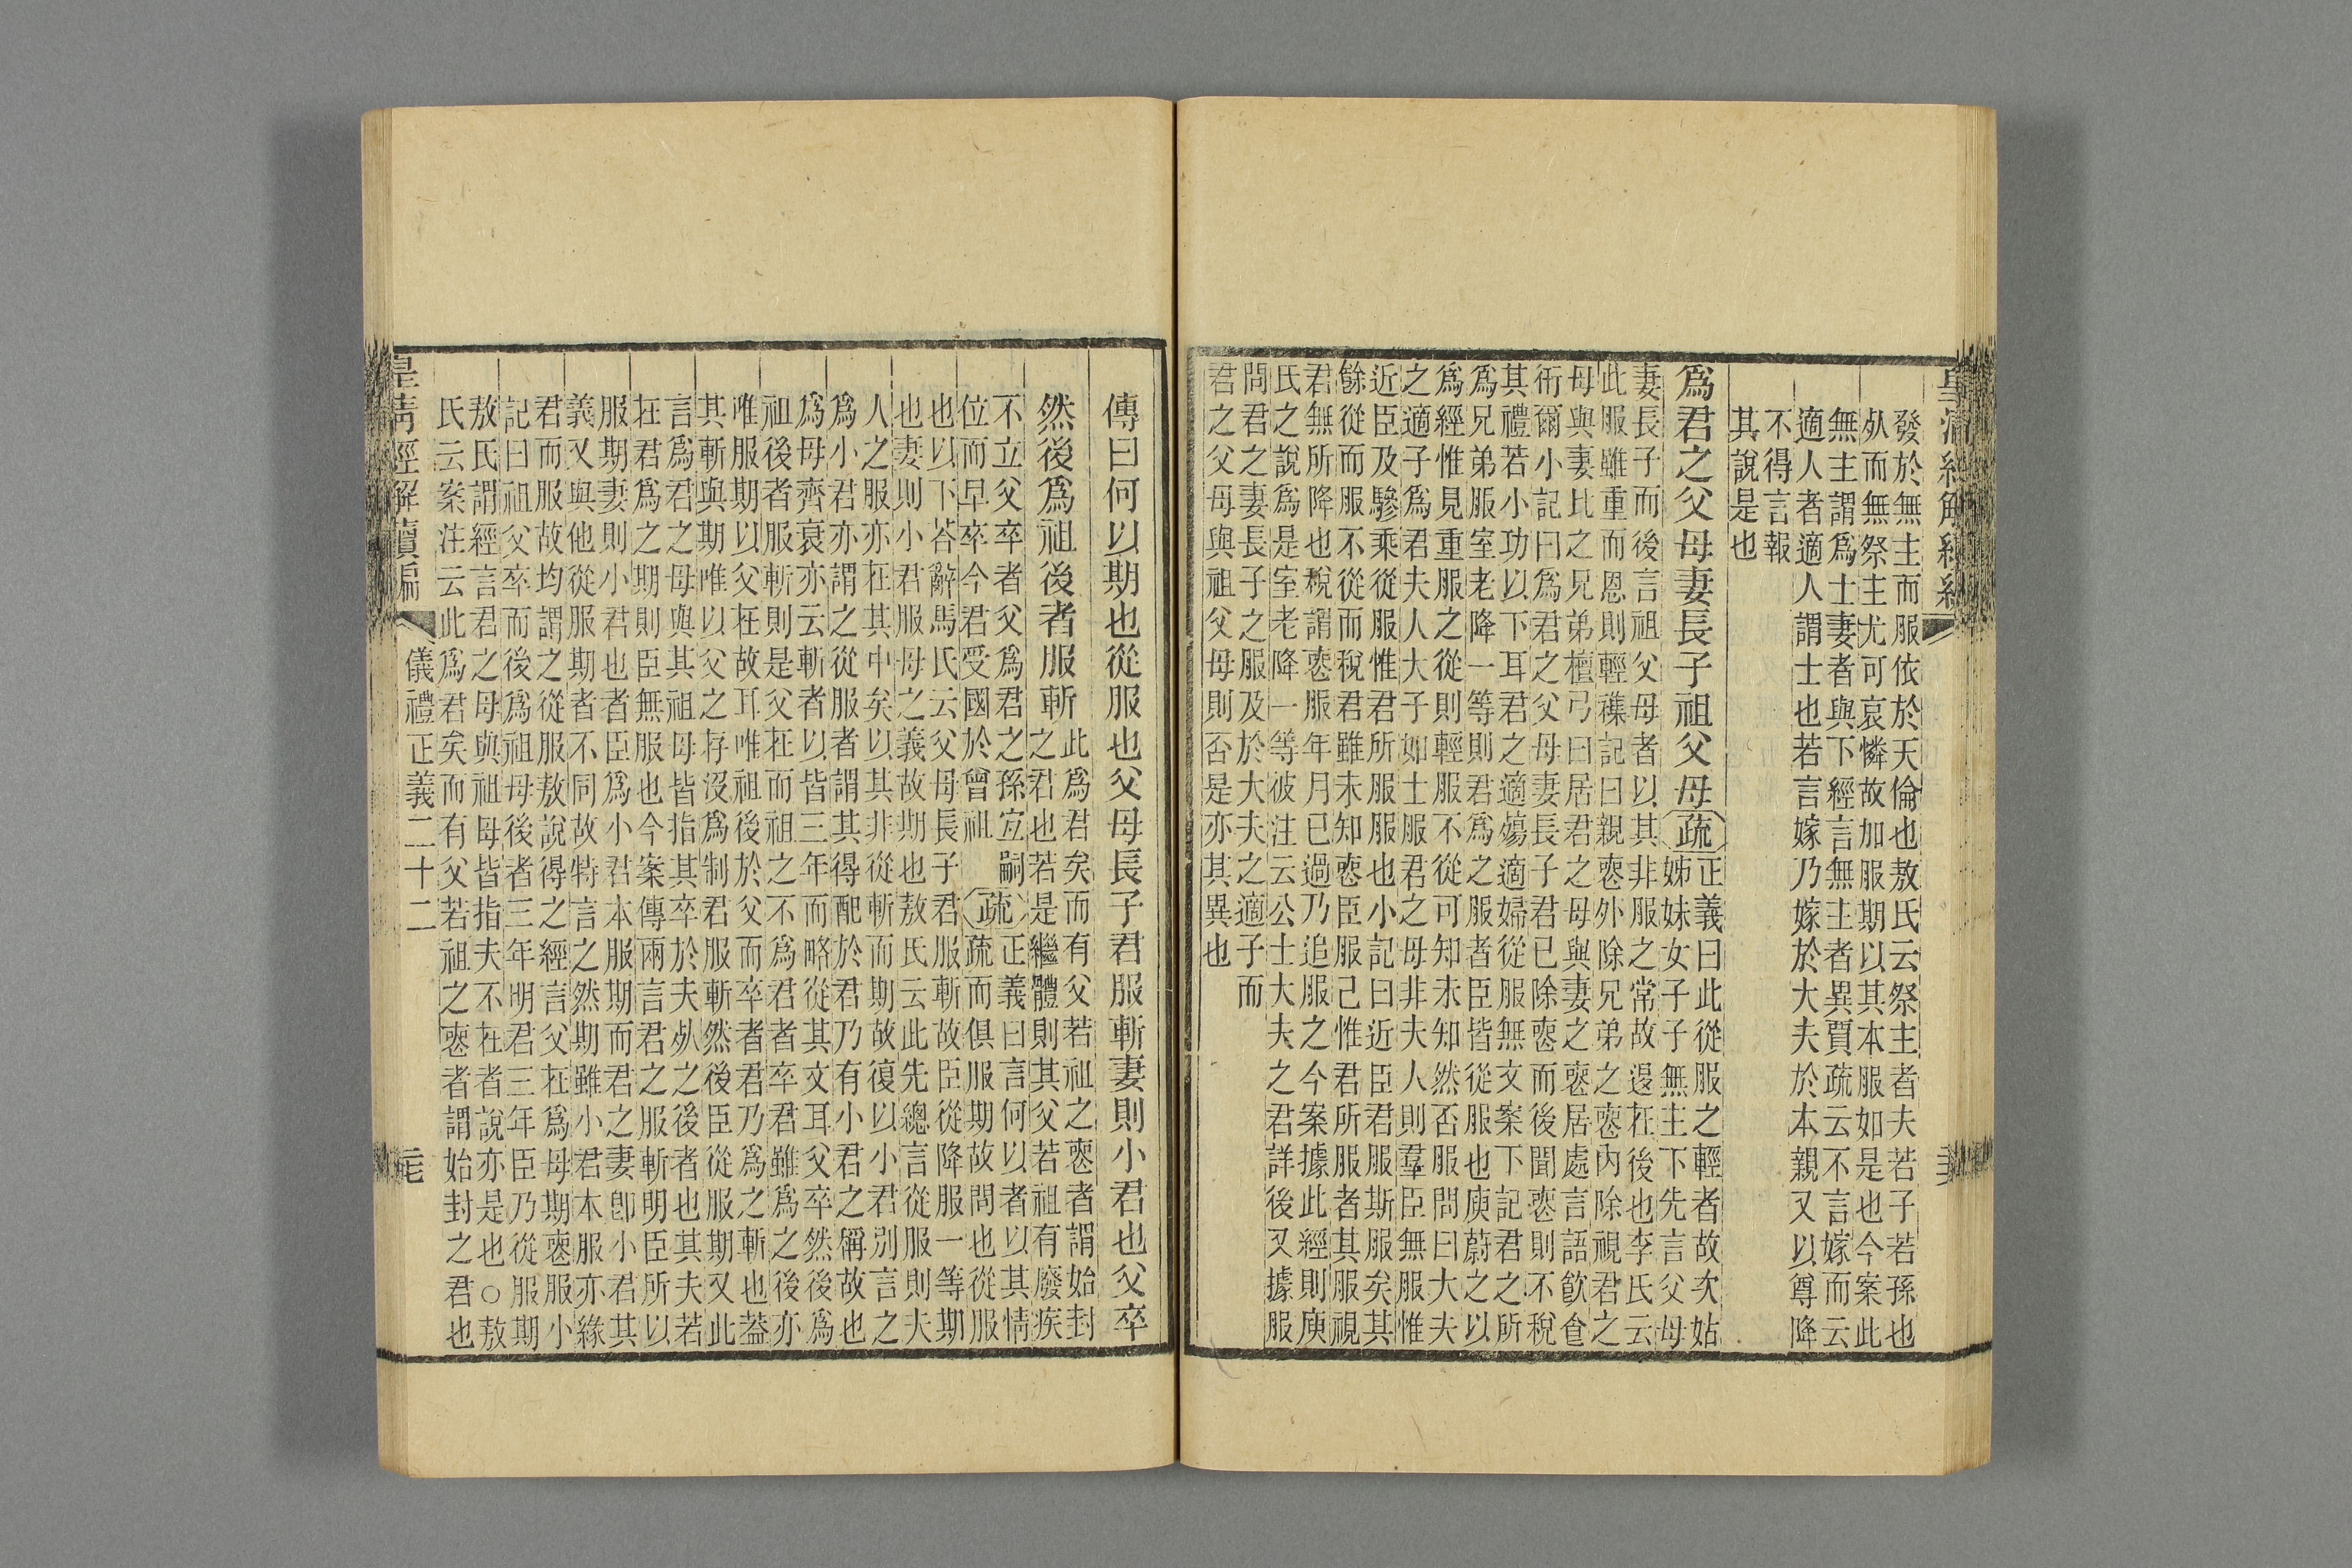 發於無主而服依於天倫也敖氏云祭主者夫若子若孫也
死而無祭主尤可哀憐故加服期以其本服如是也今案此
無主謂爲士妻者與下經言無主者異賈疏云不言嫁而云
適人者適人謂士也若言嫁乃嫁於大夫於本親又以尊降
不得言報
其說是也
爲君之父母妻長子祖父母疏
正義曰此從服之輕者故次姑
姊妹女子子無主下先言父母
妻長子而後言祖父母者以其非服之常故退在後也李氏云
此服雖重而恩則輕襍記曰親喪外除兄弟之喪內除視君之
母與妻比之兄弟檀弓曰居君之母與妻之喪居處言語飮食
衎爾小記曰爲君之父母妻長子君已除喪而後聞喪則不稅
其禮若小功以下耳君之適殤適婦從服無文案下記君之所
爲兄弟服室老降一等則君爲之服者臣皆從服也庾蔚之以
爲經惟見重服之從則輕服不從可知未知然否服問曰大夫
之適子爲君夫人大子如士服君之母非夫人則羣臣無服惟
近臣及驂乘從服惟君所服服也小記曰近臣君服斯服矣其
餘從而服不從而稅君雖未知喪臣服己惟君所服者其服視
君無所降也稅謂喪服年月已過乃追服之今案據此經則庾
氏之說爲是室老降一等彼注云公士大夫之君詳後又據服
問君之妻長子之服及於大夫之適子而
君之父母與祖父母則否是亦其異也
傳曰何以期也從服也父母長子君服斬妻則小君也父卒
然後爲祖後者服斬
此爲君矣而有父若祖之喪者謂始封
之君也若是繼體則其父若祖有廢疾
不立父卒者父爲君之孫宜嗣
位而早卒今君受國於曾祖
疏
正義曰言何以者以其情
疏而俱服期故問也從服
也以下荅辭馬氏云父母長子君服斬故臣從降服一等期
也妻則小君服母之義故期也敖氏云此先總言從服則夫
人之服亦在其中矣以其非從斬而期故復以小君別言之
爲小君亦謂之從服者謂其得配於君乃有小君之稱故也
爲母齊衰亦云斬者以皆三年而略從其文耳父卒然後爲
祖後者服斬則是父在而祖之不爲君者卒君雖爲之後亦
唯服期以父在故耳唯祖後於父而卒者君乃爲之斬也葢
其斬與期唯以父之存沒爲制君服斬然後臣從服期又此
言爲君之母與其祖母皆指其卒於夫死之後者也其夫若
在君爲之期則臣無服也今案傳兩言君之服斬明臣所以
服期妻則小君也者臣爲小君本服期而君之妻卽小君其
義又與他從服期者不同故特言之然期雖小君本服亦緣
君而服故均謂之從服敖說得之經言父在爲母期喪服小
記曰祖父卒而後爲祖母後者三年明君三年臣乃從服期
敖氏謂經言君之母與祖母皆指夫不在者說亦是也○敖
氏云案注云此爲君矣而有父若祖之喪者謂始封之君也
皇清經解續編
儀禮正義二十二